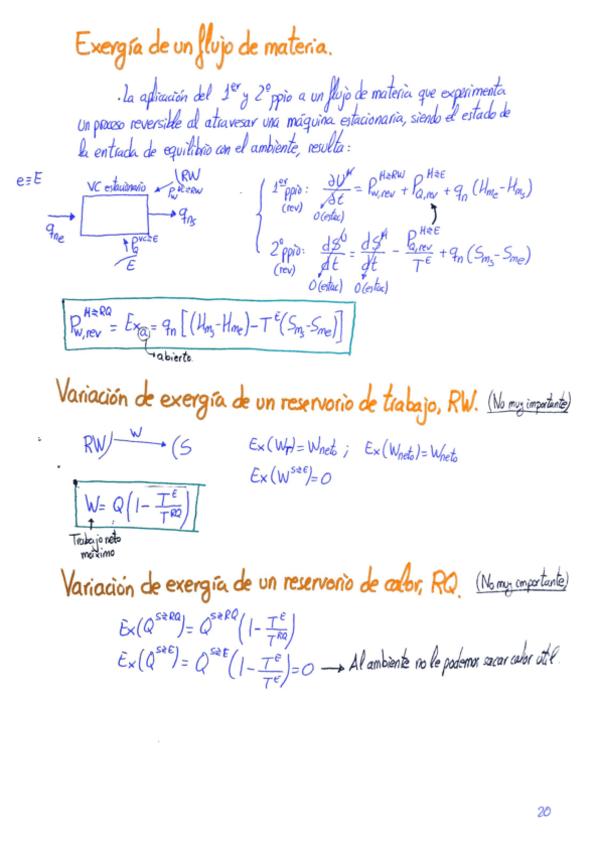 Exergía de un flujo de materia.
· La aplicación del 1er y 2º ppio a un flujo de materia que experimenta
un proceso reversible al atravesar una máquina estacionaria, siendo el estado de
la entrada de equilibrio con el ambiente, resulta:
e≡E
VC estacionario
RW
P_W^{M⇄RW}
q_{ne}
q_{ns}
P_Q^{VC⇄E}
E
1er ppio: (rev) ∂U^M/∂t = P_{W,rev}^{M⇄RW} + P_{Q,rev}^{M⇄E} + q_n (H_{me} - H_{ms})
0 (estac)
2º ppio: (rev) dS^U/dt = dS^M/dt - P_{Q,rev}^{M⇄E}/T^E + q_n (S_{ms} - S_{me})
0 (estac) 0 (estac)
P_{W,rev}^{M⇄RQ} = Ex_a = q_n [(H_{ms} - H_{me}) - T^E (S_{ms} - S_{me})]
abierto.
Variación de exergía de un reservorio de trabajo, RW. (No muy importante)
RW) W → (S
Ex(W_T) = W_neto ; Ex(W_neto) = W_neto
Ex(W^{S⇄E}) = 0
W = Q (1 - T^E/T^{RQ})
Trabajo neto
máximo
Variación de exergía de un reservorio de calor, RQ. (No muy importante)
Ex(Q^{S⇄RQ}) = Q^{S⇄RQ} (1 - T^E/T^{RQ})
Ex(Q^{S⇄E}) = Q^{S⇄E} (1 - T^E/T^E) = 0 → Al ambiente no le podemos sacar calor útil.
20